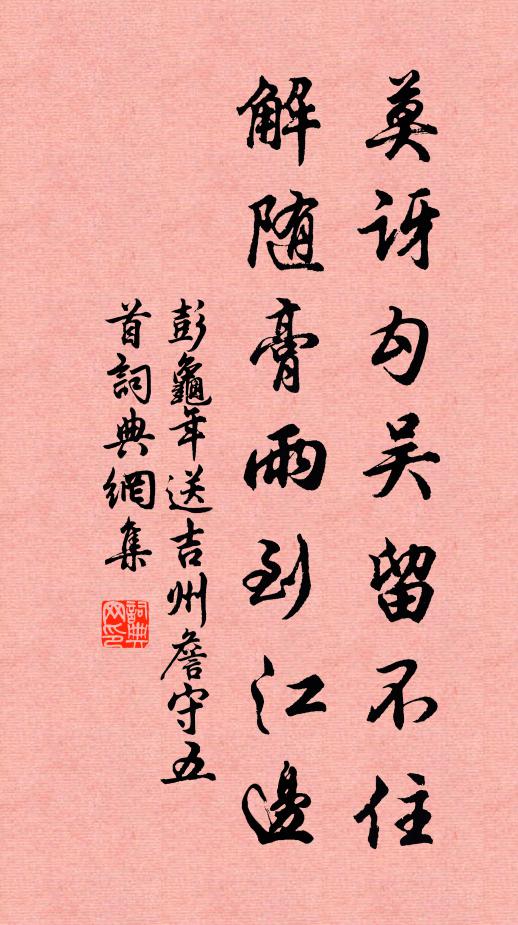 莫讶勾吴留不住
解随膏雨到江邊
彭龜年送吉州詹守五
首詞典網集
詞典
网印